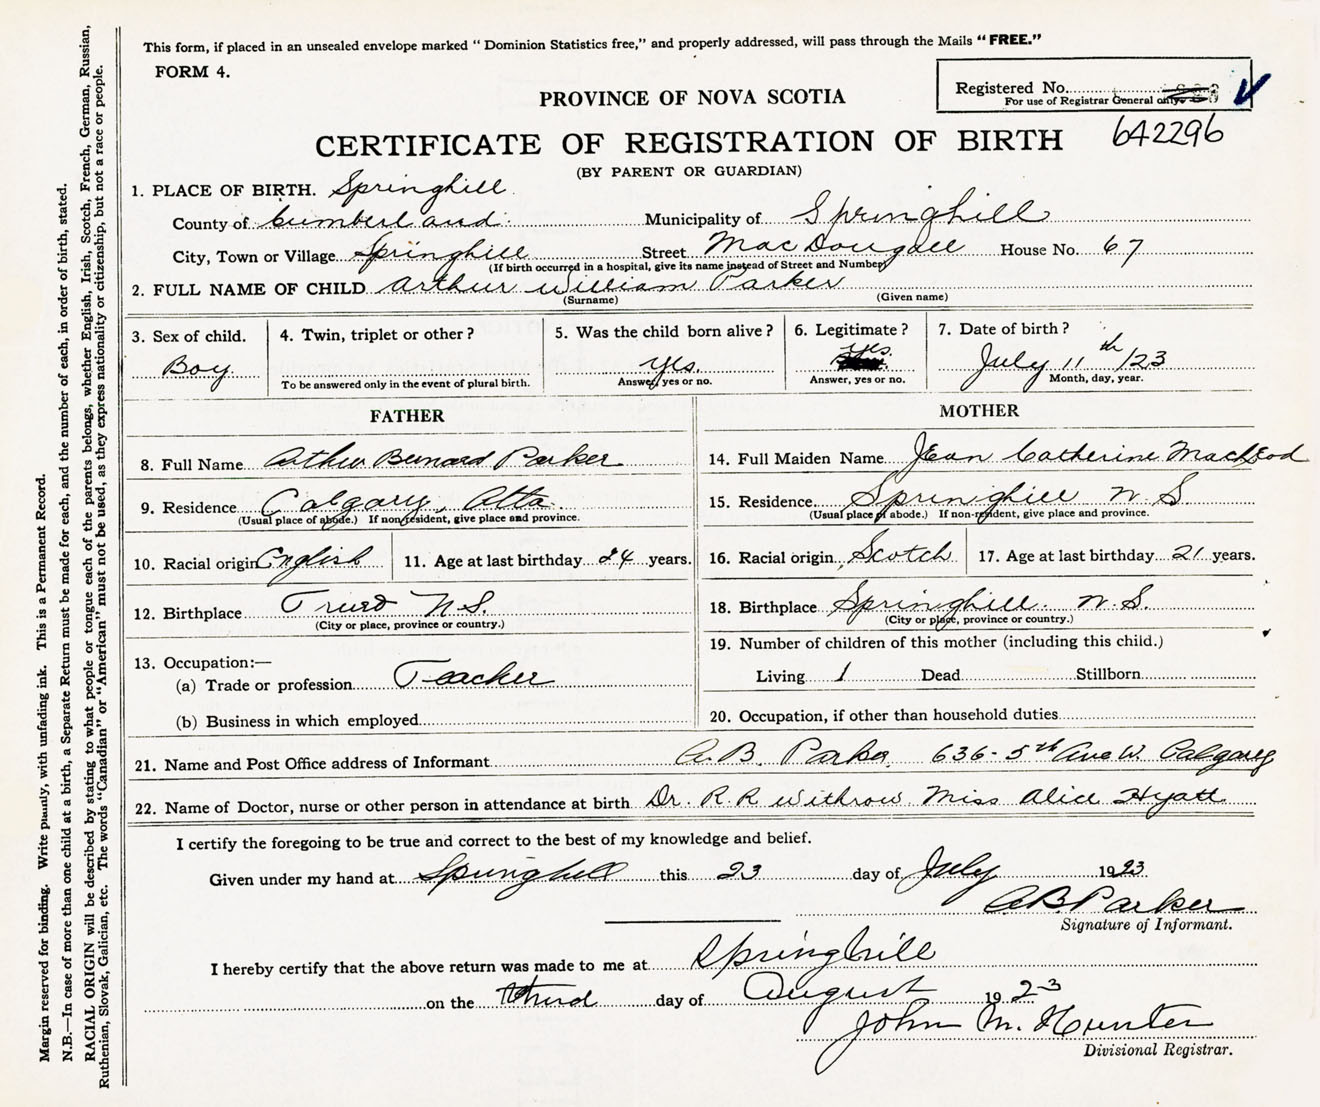 This form, if placed in an unsealed envelope marked " Dominion Statistics free," and properly addressed, will pass through the Mails "FREE."
FORM 4.
Registered No.
For use of Registrar General only.
PROVINCE OF NOVA SCOTIA
CERTIFICATE OF REGISTRATION OF BIRTH 642296
(BY PARENT OR GUARDIAN)
1. PLACE OF BIRTH. Springhill
County of Cumberland. Municipality of Springhill
City, Town or Village Springhill Street MacDougall House No. 67
(If birth occurred in a hospital, give its name instead of Street and Number)
2. FULL NAME OF CHILD Arthur William Parker
(Surname) (Given name)
3. Sex of child. 4. Twin, triplet or other? 5. Was the child born alive? 6. Legitimate? 7. Date of birth?
Boy yes. yes. July 11th/23
To be answered only in the event of plural birth. Answer, yes or no. Answer, yes or no. Month, day, year.
FATHER MOTHER
8. Full Name Arthur Bernard Parker 14. Full Maiden Name Jean Catherine MacLeod
9. Residence Calgary, Alta. 15. Residence Springhill N S
(Usual place of abode.) If non-resident, give place and province. (Usual place of abode.) If non-resident, give place and province.
10. Racial origin English 11. Age at last birthday 24 years. 16. Racial origin Scotch 17. Age at last birthday 21 years.
12. Birthplace Truro N.S. 18. Birthplace Springhill. N.S.
(City or place, province or country.) (City or place, province or country.)
13. Occupation:— 19. Number of children of this mother (including this child.)
(a) Trade or profession Teacher Living 1 Dead Stillborn
(b) Business in which employed 20. Occupation, if other than household duties
21. Name and Post Office address of Informant A.B. Parker 636-5th Ave W. Calgary
22. Name of Doctor, nurse or other person in attendance at birth Dr. R.R Withrow Miss Alice Hyatt
I certify the foregoing to be true and correct to the best of my knowledge and belief.
Given under my hand at Springhill this 23 day of July 1923
AB Parker
Signature of Informant.
I hereby certify that the above return was made to me at Springhill
on the third day of August 1923
John M. Hunter
Divisional Registrar.
Margin reserved for binding. Write plainly, with unfading ink. This is a Permanent Record.
N.B.—In case of more than one child at a birth, a Separate Return must be made for each, and the number of each, in order of birth, stated.
RACIAL ORIGIN will be described by stating to what people or tongue each of the parents belongs, whether English, Irish, Scotch, French, German, Russian,
Ruthenian, Slovak, Galician, etc. The words "Canadian" or "American" must not be used, as they express nationality or citizenship, but not a race or people.